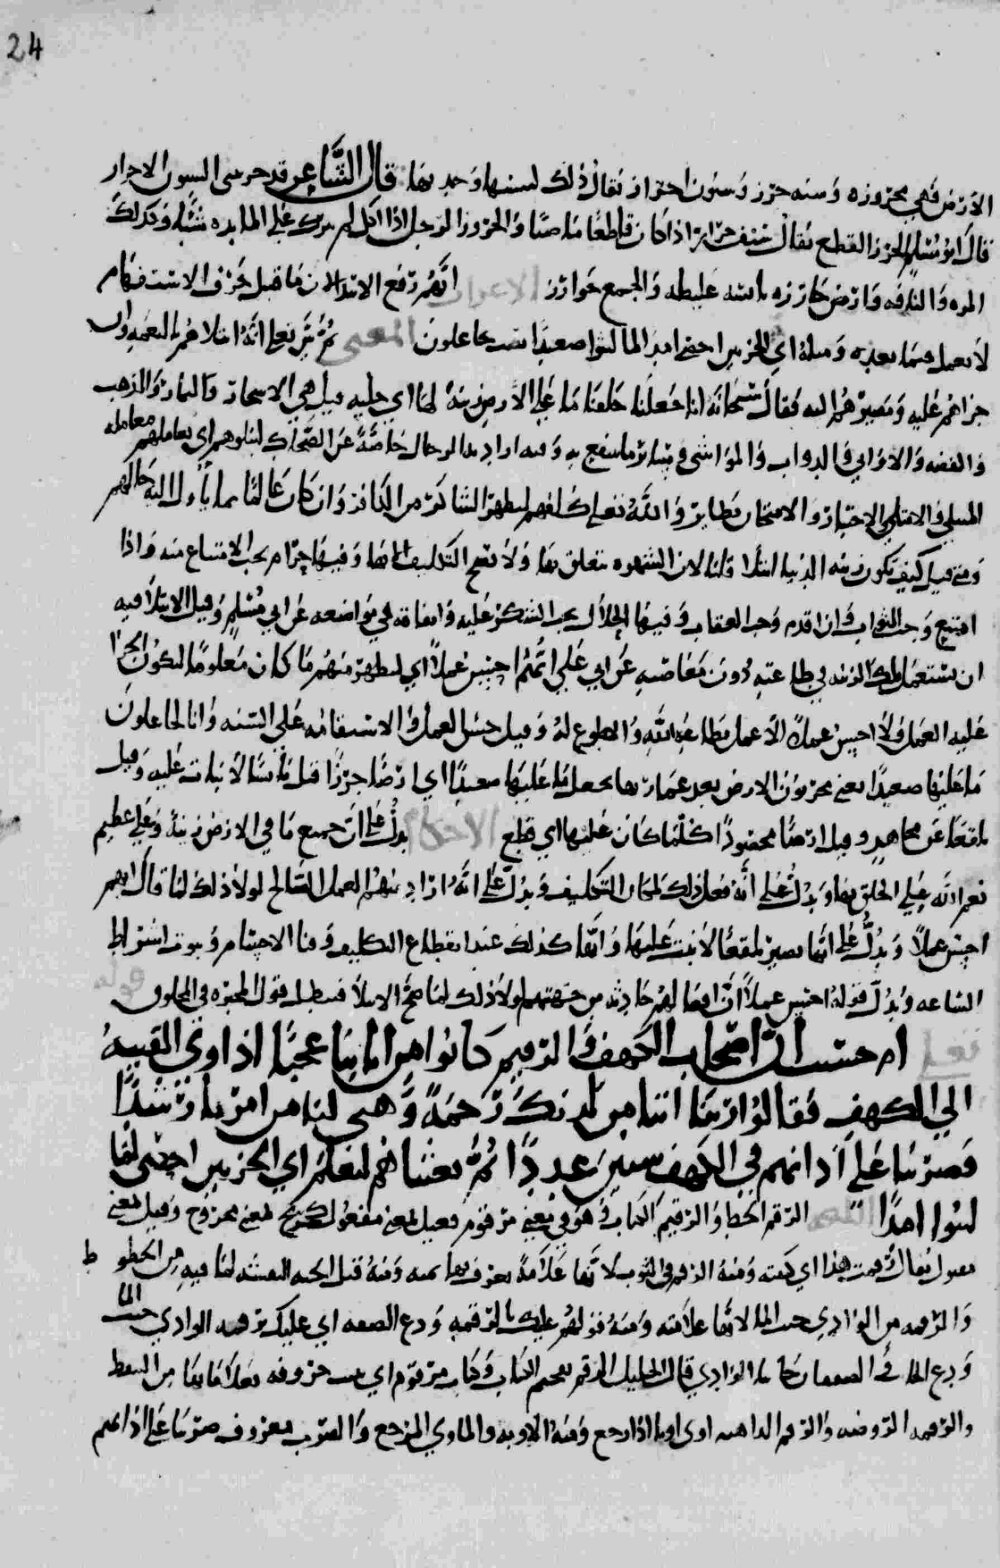 24
الأرض فهي مجروزه وسنه جرز وسنون اجراز يقال ذلك لسنيها وجدبها قال الشاعر قد جرفتهن السنون الاجراز
قال ابو مسلم الجرز القطع يقال سيف جراز اذا كان قاطعا ماضيا والجروز الرجل اذا اكل لم يترك على المايده شيئا وكذلك
المره والناقه وارض جارزه يابسه غليظه والجمع جوارز الاعراب ايهم رفع الابتداء لان ما قبل حرف الاستفهام
لا يعمل فيما بعده ومثله اي الحزبين احصى لما لبثوا صعيدا نصب بجاعلون المعنى ثم بين تعالى انه
جزاهم عليه ومصيرهم اليه فقال سبحانه انا جعلنا خلقنا ما على الأرض زينة لها اي حليه قيل هي الاشجار والثمار والذهب
والفضه والاواني والدواب والمواشي وسائر ما ينتفع به وقيل اراد بها الرجال خاصة عن الضحاك لنبلوهم اي نعاملهم معامله
المبتلي والابتلاء الاختبار والامتحان نظاير والله تعالى كلفهم ليظهر الشاكر من الكافر وان كان عالما بما يأول اليه حالهم
ومتى قيل كيف تكون زينه الدنيا ابتلا قلنا لان الشهوه تتعلق بها ولا يصح التكليف الا بها وفيها حرام يجب الامتناع منه واذا
امتنع وجب الثواب وان اقدم وجب العقاب وفيها الحلال يجب الشكر عليه وانفاقه في مواضعه عن ابي مسلم وقيل الابتلا فيه
ان تستعمل تلك الزينه في طاعته دون معاصيه عن ابي علي ايهم احسن عملا اي ليظهر منهم ما كان معلوما ليكون الجزا
عليه العمل ولا احسن عملا الا عمل بطاعه الله والطوع له وقيل حسن العمل الاستقامه على السنه وانا لجاعلون
ما عليها صعيدا يعني مخربون الارض بعد عمارتها نجعل ما عليها صعيدا اي ارضا جرزا قيل يابسا لا نبات عليه وقيل
بلقعا عن مجاهد وقيل ارضا محصودا كلما كان عليها اي قطع الاحكام يدل على ان جميع ما في الارض زينه وعلى عظيم
نعم الله على الخلق بها ويدل على انه فعل ذلك لمكان التكليف ويدل على انه اراد منهم العمل الصالح لولا ذلك لما قال ايهم
احسن عملا ويدل على انها تصير بلقعا لا نبت عليها وانها كذلك عند انقطاع التكليف وفنا الاجسام وثبوت اشراط
الساعه ويدل قوله احسن عملا ان افعالهم حادثه من جهتهم لولا ذلك لما صح الابتلا فبطل قول المجبره في المخلوق قوله
تعالى ام حسبت ان اصحاب الكهف والرقيم كانوا من اياتنا عجبا اذ اوى الفتيه
الى الكهف فقالوا ربنا اتنا من لدنك رحمة وهيئ لنا من امرنا رشدا
فضربنا على اذانهم في الكهف سنين عددا ثم بعثناهم لنعلم اي الحزبين احصى لما
لبثوا امدا اللغه الرقم الخط والرقيم الكتاب وهو في معنى مرقوم فعيل بمعنى مفعول كجريح بمعنى مجروح وقيل بمعنى
يقال رقمت هذا اي كتبته ومنه الرقم في الثوب لانها علامة يعرف بها ثمنه ومنه قيل الحيه الرقشه لما فيه من الخطوط
والرقمه من الوادي حيث الماء لانها علامته ومنه قولهم عليك بالرقمه ودع الضفه اي عليك برقمه الوادي حيث الما
ودع الما في الضفتان جانبا الوادي قال الخليل الرقم تعجيم الكتاب وكتاب مرقوم اي بينت حروفه بعلاماتها من النقط
والرقمه الروضه والرقم الداهيه اوى اويا اذا رجع ومنه الاوبه والماوى المرجع والضرب معروف ضربنا على اذانهم